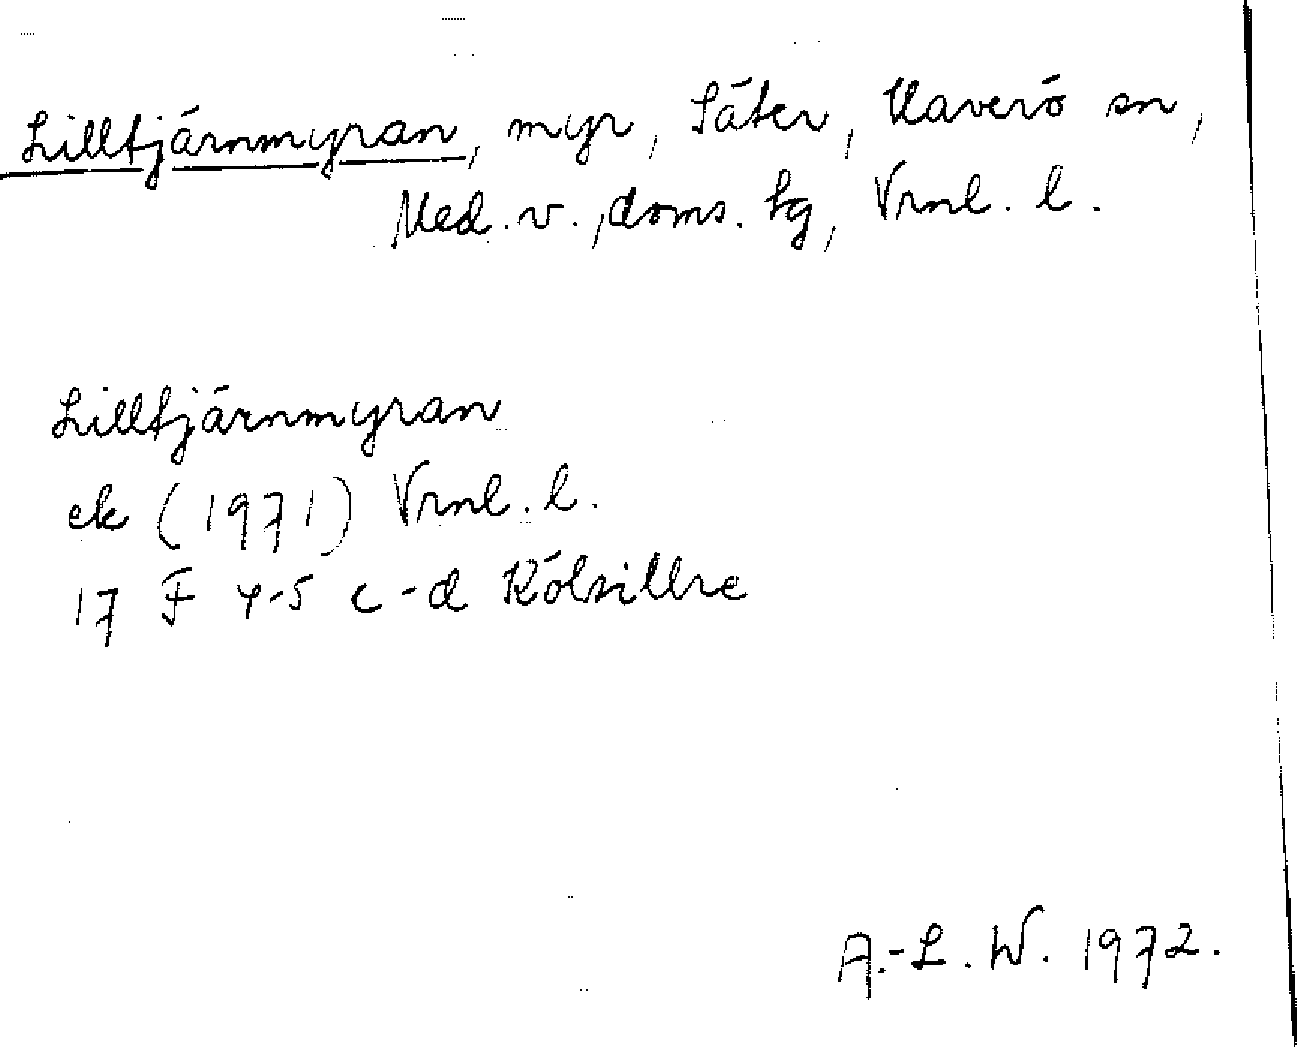 Lilltjärnmyran, myr, Säter, Haverö sn,
Med. v., doms. tg, Vrnl. l.
Lilltjärnmyran
ek (1971) Vrnl. l.
17 F 4-5 c-d Kölsillre
A.-L. W. 1972.